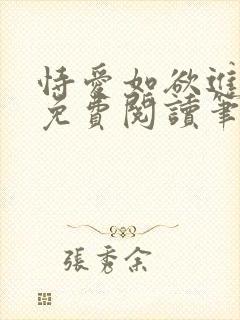 恃愛如欲進
免費閱讀筆
張秀余